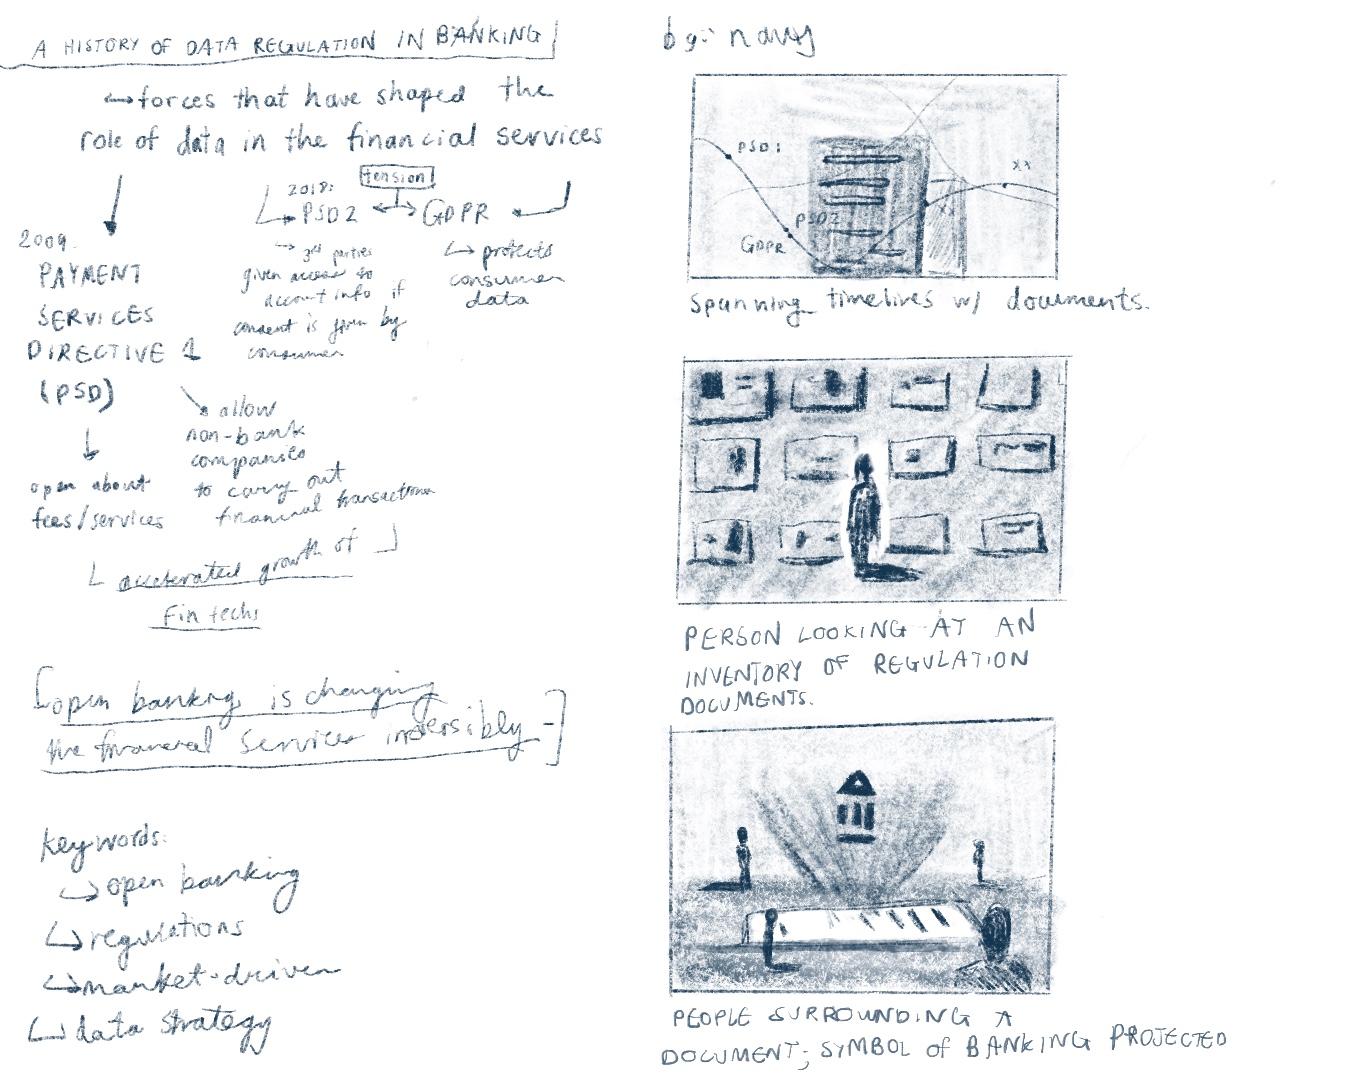 A HISTORY OF DATA REGULATION IN BANKING
forces that have shaped the
role of data in the financial services
2009.
PAYMENT
SERVICES
DIRECTIVE 1
(PSD)
open about
fees/services
allow
non-bank
companies
to carry out
financial transactions
accelerated growth of
Fin techs
tension
2018:
PSD2
GDPR
3rd parties
given access to
account info if
consent is given by
consumer
protects
consumer
data
[open banking is changing
the financial services irreversibly-]
keywords:
open banking
regulations
market-driven
data strategy
bg: navy
PSD1
PSD2
GDPR
xx
xx
spanning timelines w/ documents.
PERSON LOOKING AT AN
INVENTORY OF REGULATION
DOCUMENTS.
PEOPLE SURROUNDING A
DOCUMENT; SYMBOL OF BANKING PROJECTED